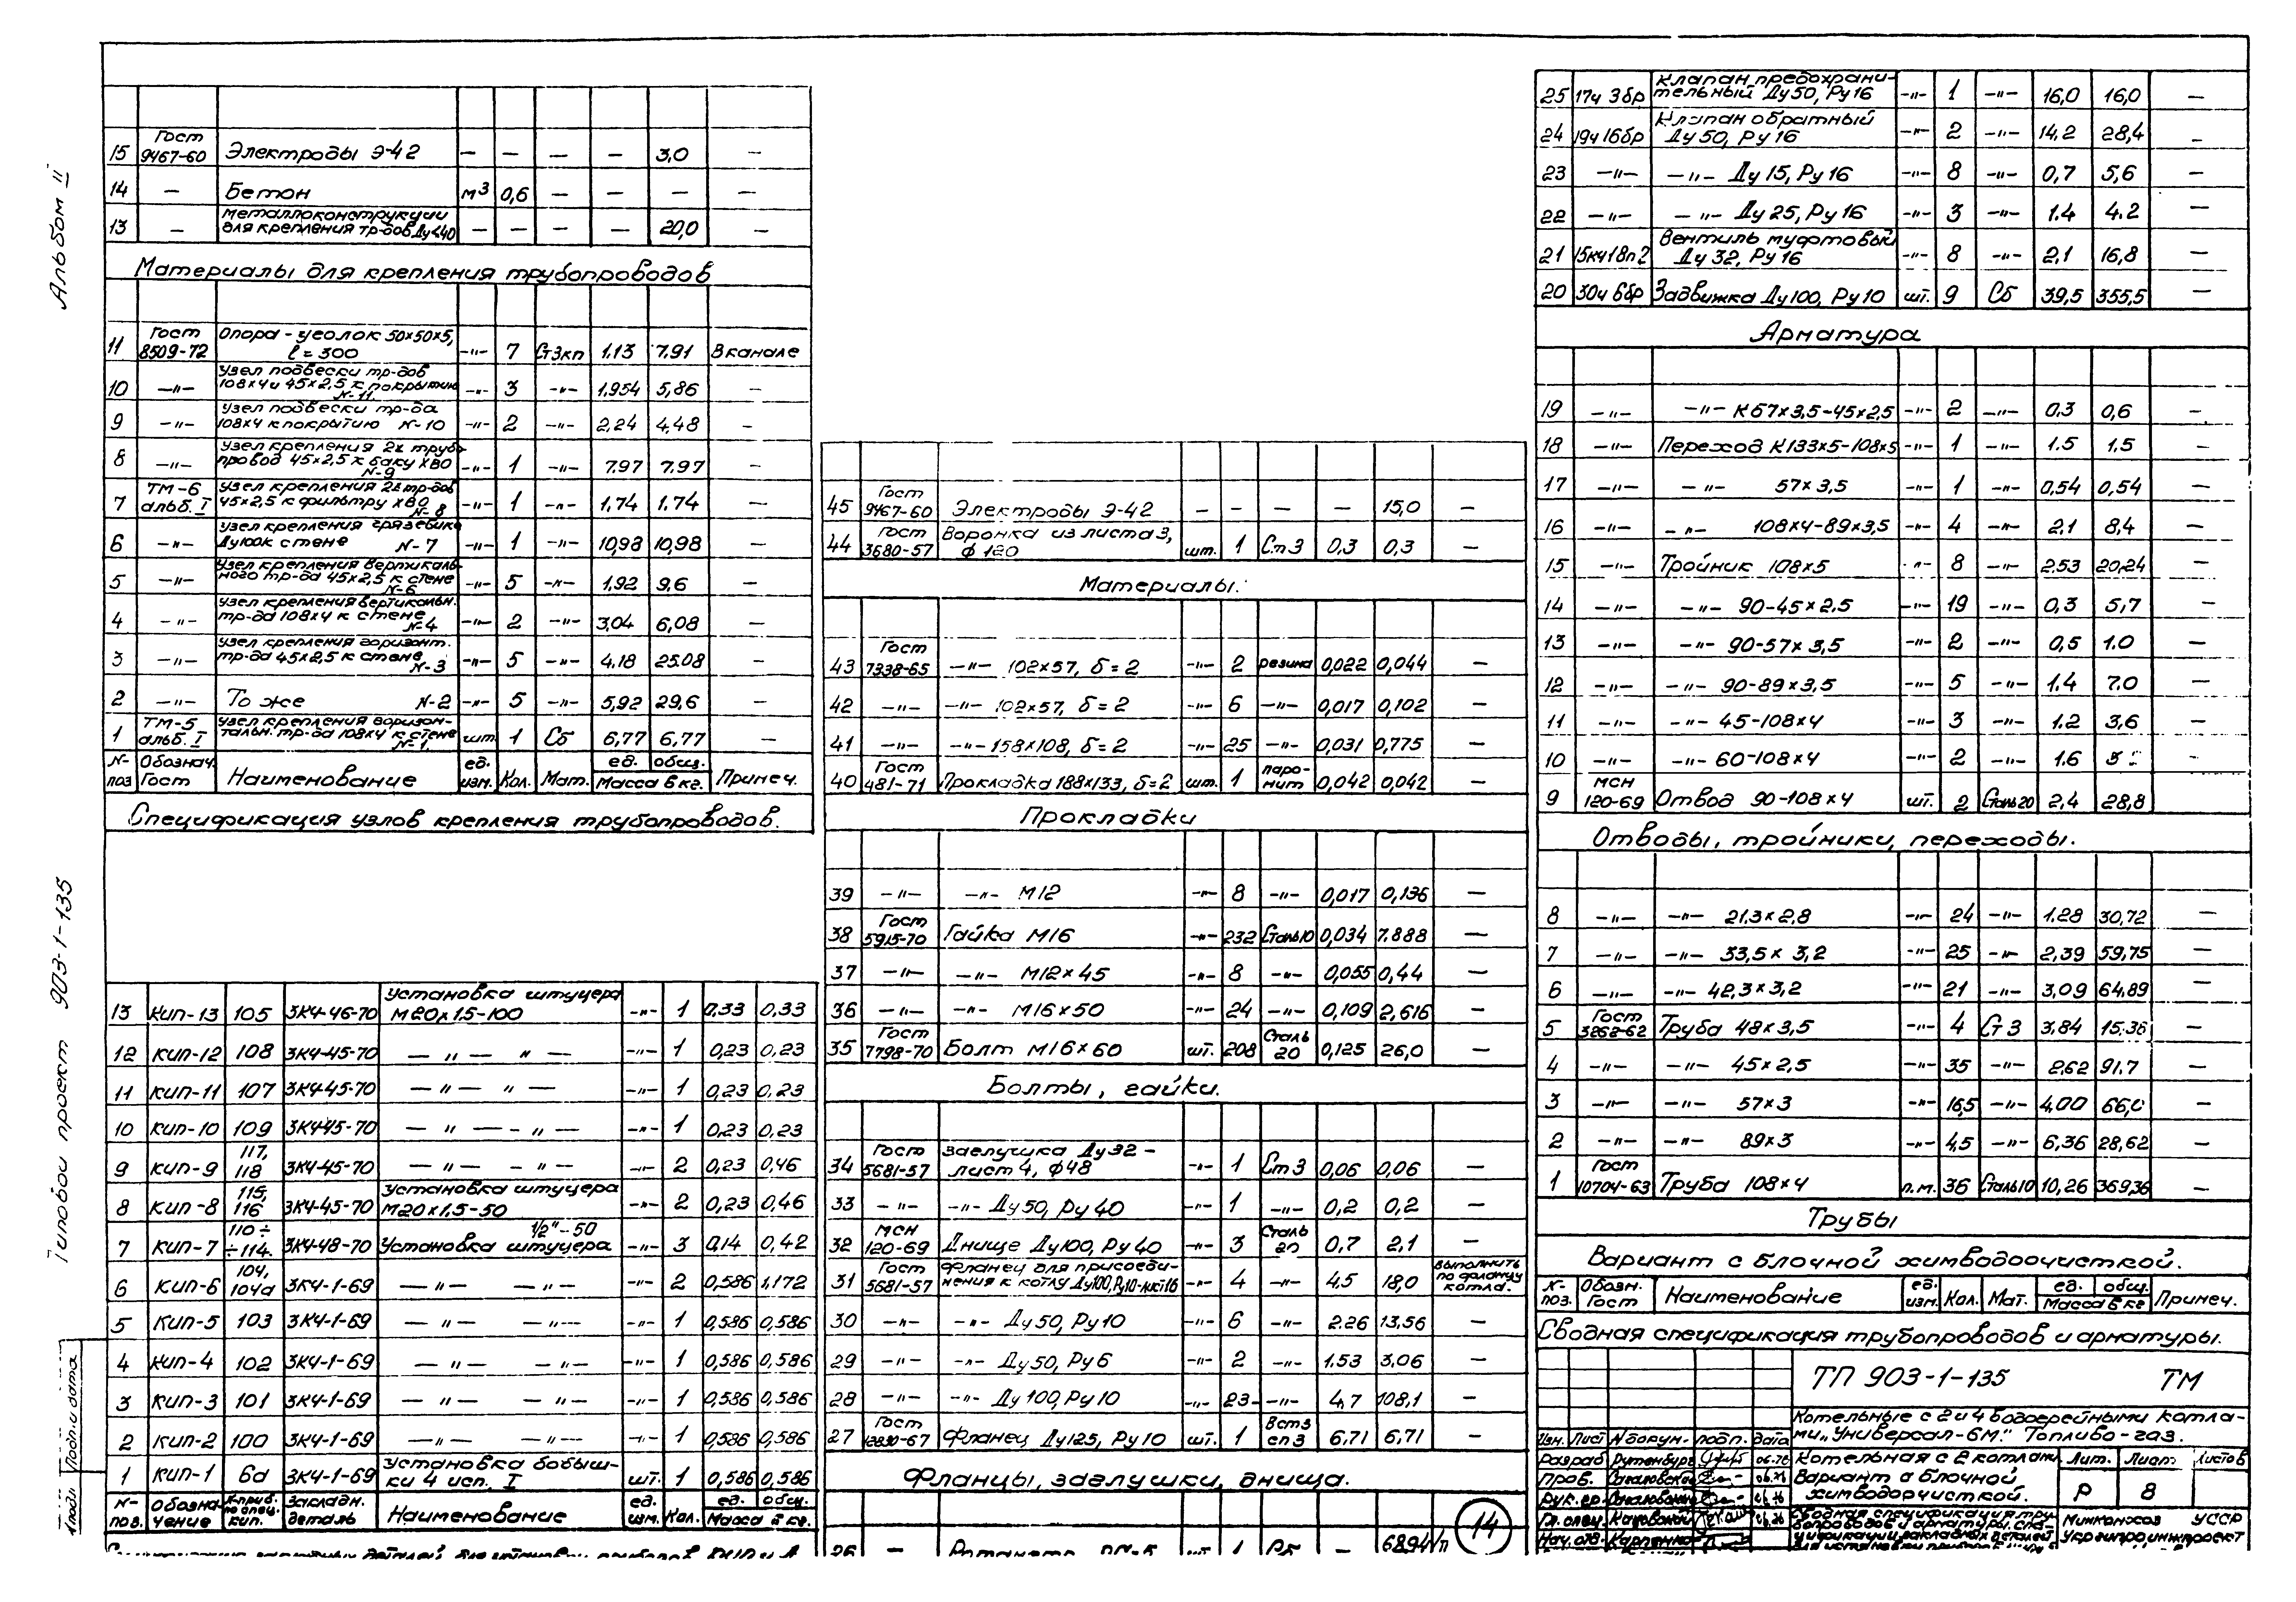 Альбом II
Типовой проект 903-1-135
Подп. и дата
15 Гост 9467-60 Электроды Э-42 — — — — 3,0 —
14 — Бетон м3 0,6 — — — —
13 — Металлоконструкции для крепления тр-дов Ду≤40 — — — — 20,0 —
Материалы для крепления трубопроводов
11 Гост 8509-72 Опора - уголок 50х50х5, ℓ = 300 -"- 7 Ст3кп 1.13 7.91 В канале
10 -"- Узел подвески тр-дов 108х4 и 45х2,5 к покрытию N-11 -"- 3 -"- 1,954 5,86 —
9 -"- Узел подвески тр-да 108х4 к покрытию N-10 -"- 2 -"- 2,24 4,48 —
8 -"- Узел крепления 2х трубопровод 45х2,5 к баку ХВО N-9 -"- 1 -"- 7.97 7.97 —
7 ТМ-6 альб. I Узел крепления 2х тр-дов 45х2,5 к фильтру ХВО N-8 -"- 1 -"- 1,74 1.74 —
6 -"- Узел крепления грязевика Ду100 к стене N-7 -"- 1 -"- 10,98 10,98 —
5 -"- Узел крепления вертикального тр-да 45х2,5 к стене N-6 -"- 5 -"- 1.92 9.6 —
4 -"- Узел крепления вертикальн. тр-да 108х4 к стене N-4 -"- 2 -"- 3,04 6,08 —
3 -"- Узел крепления горизонт. тр-да 45х2,5 к стене N-3 -"- 5 -"- 4.18 25.08 —
2 -"- То же N-2 -"- 5 -"- 5,92 29,6 —
1 ТМ-5 альб. I Узел крепления горизонтальн. тр-да 108х4 к стене N-1 шт. 1 Сб 6,77 6,77 —
N- поз Обознач. Гост Наименование ед. изм. Кол. Мат. ед. общ. Масса в кг. Примеч.
Спецификация узлов крепления трубопроводов.
13 КИП-13 105 ЗК4-46-70 Установка штуцера М20х1.5-100 -"- 1 0,33 0,33
12 КИП-12 108 ЗК4-45-70 — " — " — -"- 1 0,23 0,23
11 КИП-11 107 ЗК4-45-70 — " — " — -"- 1 0,23 0,23
10 КИП-10 109 ЗК4-45-70 — " — - " — -"- 1 0,23 0,23
9 КИП-9 117, 118 ЗК4-45-70 — " — - " — -"- 2 0,23 0,46
8 КИП-8 115, 116 ЗК4-45-70 Установка штуцера М20х1.5-50 -"- 2 0,23 0,46
7 КИП-7 110÷ ÷114 ЗК4-48-70 Установка штуцера 1/2"-50 -"- 3 0,14 0,42
6 КИП-6 104, 104а ЗК4-1-69 — " — — " — -"- 2 0,586 1,172
5 КИП-5 103 ЗК4-1-69 — " — — " — -"- 1 0,586 0,586
4 КИП-4 102 ЗК4-1-69 — " — — " — -"- 1 0,586 0,586
3 КИП-3 101 ЗК4-1-69 — " — — " — -"- 1 0,586 0,586
2 КИП-2 100 ЗК4-1-69 — " — — " — -"- 1 0,586 0,586
1 КИП-1 6а ЗК4-1-69 Установка бобышки 4 исп. I шт. 1 0,586 0,586
N- поз. Обозначение N-приб. по спец. КИП. Закладн. деталь Наименование ед. изм. Кол. ед. общ. Масса в кг.
45 Гост 9467-60 Электроды Э-42 — — — — 15,0 —
44 Гост 3680-57 Воронка из листа 3, ф 120 шт. 1 Ст 3 0,3 0,3 —
Материалы.
43 Гост 7338-65 -"- 102х57, δ = 2 -"- 2 резина 0,022 0,044 —
42 -"- -"- 102х57, δ = 2 -"- 6 -"- 0,017 0,102 —
41 -"- -"- 158х108, δ = 2 -"- 25 -"- 0,031 0,775 —
40 Гост 481-71 Прокладка 188х133, δ=2 шт. 1 паронит 0,042 0,042 —
Прокладки
39 -"- -"- М12 -"- 8 -"- 0,017 0,136 —
38 Гост 5915-70 Гайка М16 -"- 232 Сталь10 0,034 7.888 —
37 -"- -"- М12х45 -"- 8 -"- 0,055 0,44 —
36 -"- -"- М16х50 -"- 24 -"- 0,109 2,616 —
35 Гост 7798-70 Болт М16х60 шт. 208 Сталь 20 0,125 26,0 —
Болты, гайки.
34 Гост 5681-57 Заглушка Ду32 - лист 4, ф48 -"- 1 Ст 3 0,06 0,06 —
33 -"- -"- Ду 50, Ру 40 -"- 1 -"- 0,2 0,2 —
32 МСН 120-69 Днище Ду100, Ру 40 -"- 3 Сталь 20 0,7 2,1 —
31 Гост 5681-57 Фланец для присоединения к котлу Ду100, Ру10-лист16 -"- 4 -"- 4,5 18,0 Выполнить по фланцу котла.
30 -"- -"- Ду 50, Ру 10 -"- 6 -"- 2.26 13,56 —
29 -"- -"- Ду 50, Ру 6 -"- 2 -"- 1.53 3,06 —
28 -"- -"- Ду 100, Ру 10 -"- 23 -"- 4,7 108,1 —
27 Гост 12830-67 Фланец Ду125, Ру 10 шт. 1 Вст3 сп 3 6.71 6,71 —
Фланцы, заглушки, днища.
26 — шт 1 Сб —
6894/п
14
25 17ч 3бр Клапан предохранительный Ду 50, Ру 16 -"- 1 -"- 16,0 16,0 —
24 19ч 16бр Клапан обратный Ду 50, Ру 16 -"- 2 -"- 14,2 28,4 —
23 -"- -"- Ду 15, Ру 16 -"- 8 -"- 0,7 5,6 —
22 -"- -"- Ду 25, Ру 16 -"- 3 -"- 1.4 4.2 —
21 15кч18п2 Вентиль муфтовый Ду 32, Ру 16 -"- 8 -"- 2,1 16,8 —
20 30ч 6бр Задвижка Ду100, Ру 10 шт. 9 Сб 39,5 355,5 —
Арматура
19 -"- -"- К 67х3,5-45х2,5 -"- 2 -"- 0.3 0,6 —
18 -"- Переход К133х5-108х5 -"- 1 -"- 1.5 1.5 —
17 -"- -"- 57х3,5 -"- 1 -"- 0,54 0,54 —
16 -"- -"- 108х4-89х3,5 -"- 4 -"- 2,1 8,4 —
15 -"- Тройник 108х5 -"- 8 -"- 2.53 20,24 —
14 -"- -"- 90-45х2.5 -"- 19 -"- 0,3 5,7 —
13 -"- -"- 90-57х3,5 -"- 2 -"- 0,5 1.0 —
12 -"- -"- 90-89х3,5 -"- 5 -"- 1.4 7.0 —
11 -"- -"- 45-108х4 -"- 3 -"- 1.2 3,6 —
10 -"- -"- 60-108х4 -"- 2 -"- 1.6 —
9 МСН 120-69 Отвод 90-108х4 шт. 2 Сталь20 2,4 28,8 —
Отводы, тройники, переходы.
8 -"- -"- 21.3х2,8 -"- 24 -"- 1.28 30,72 —
7 -"- -"- 33,5х3,2 -"- 25 -"- 2,39 59,75 —
6 -"- -"- 42,3х3,2 -"- 21 -"- 3,09 64,89 —
5 Гост 3262-62 Труба 48х3,5 -"- 4 Ст 3 3,84 15.36 —
4 -"- -"- 45х2,5 -"- 35 -"- 2.62 91.7 —
3 -"- -"- 57х3 -"- 16,5 -"- 4,00 66,0 —
2 -"- -"- 89х3 -"- 4,5 -"- 6,36 28,62 —
1 Гост 10704-63 Труба 108х4 п.м. 36 Сталь10 10,26 369,36 —
Трубы
Вариант с блочной химводоочисткой.
N- поз. Обозн. Гост Наименование ед. изм. Кол. Мат. ед. общ. Масса в кг Примеч.
Сводная спецификация трубопроводов и арматуры.
ТП 903-1-135 ТМ
Котельные с 2 и 4 водогрейными котлами „Универсал-6М." Топливо-газ.
Изм. Лист N докум. подп. дата
Разраб Рутенбург 06.76
Пров.
Рук.гр.
Гл. спец.
Нач. отд. Карпенко
Котельная с 2 котлами. Вариант с блочной химводоочисткой.
Лит. Лист Листов
Р 8
Сводная спецификация трубопроводов и арматуры. Спецификация закладных деталей
Минкомхоз УССР
Укргипроинжпроект